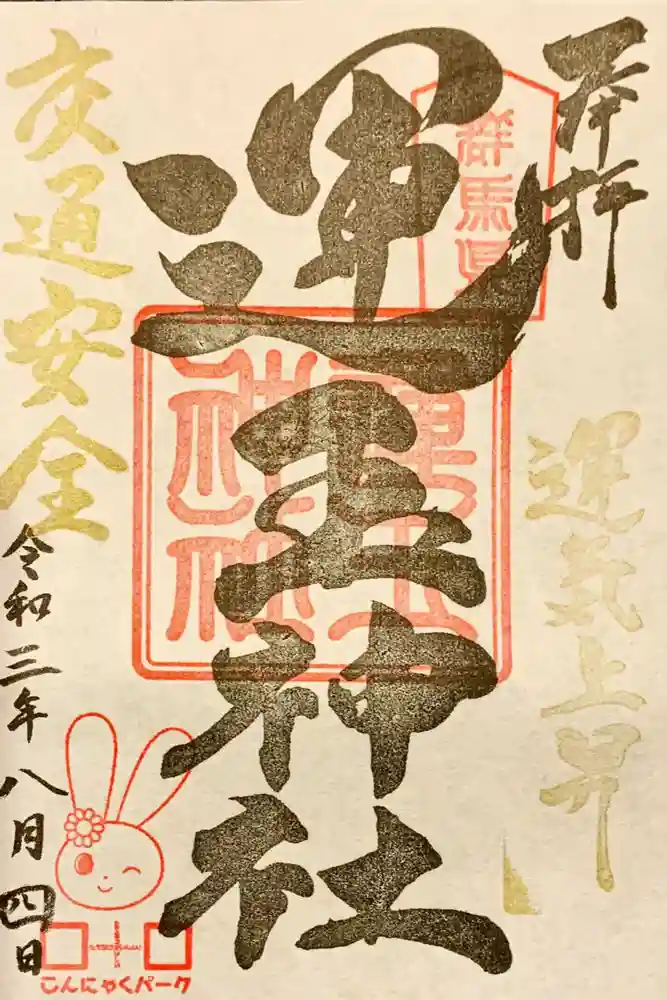 奉拝
運気上昇
群馬県
運玉神社
交通安全
令和三年八月四日
こんにゃくパーク